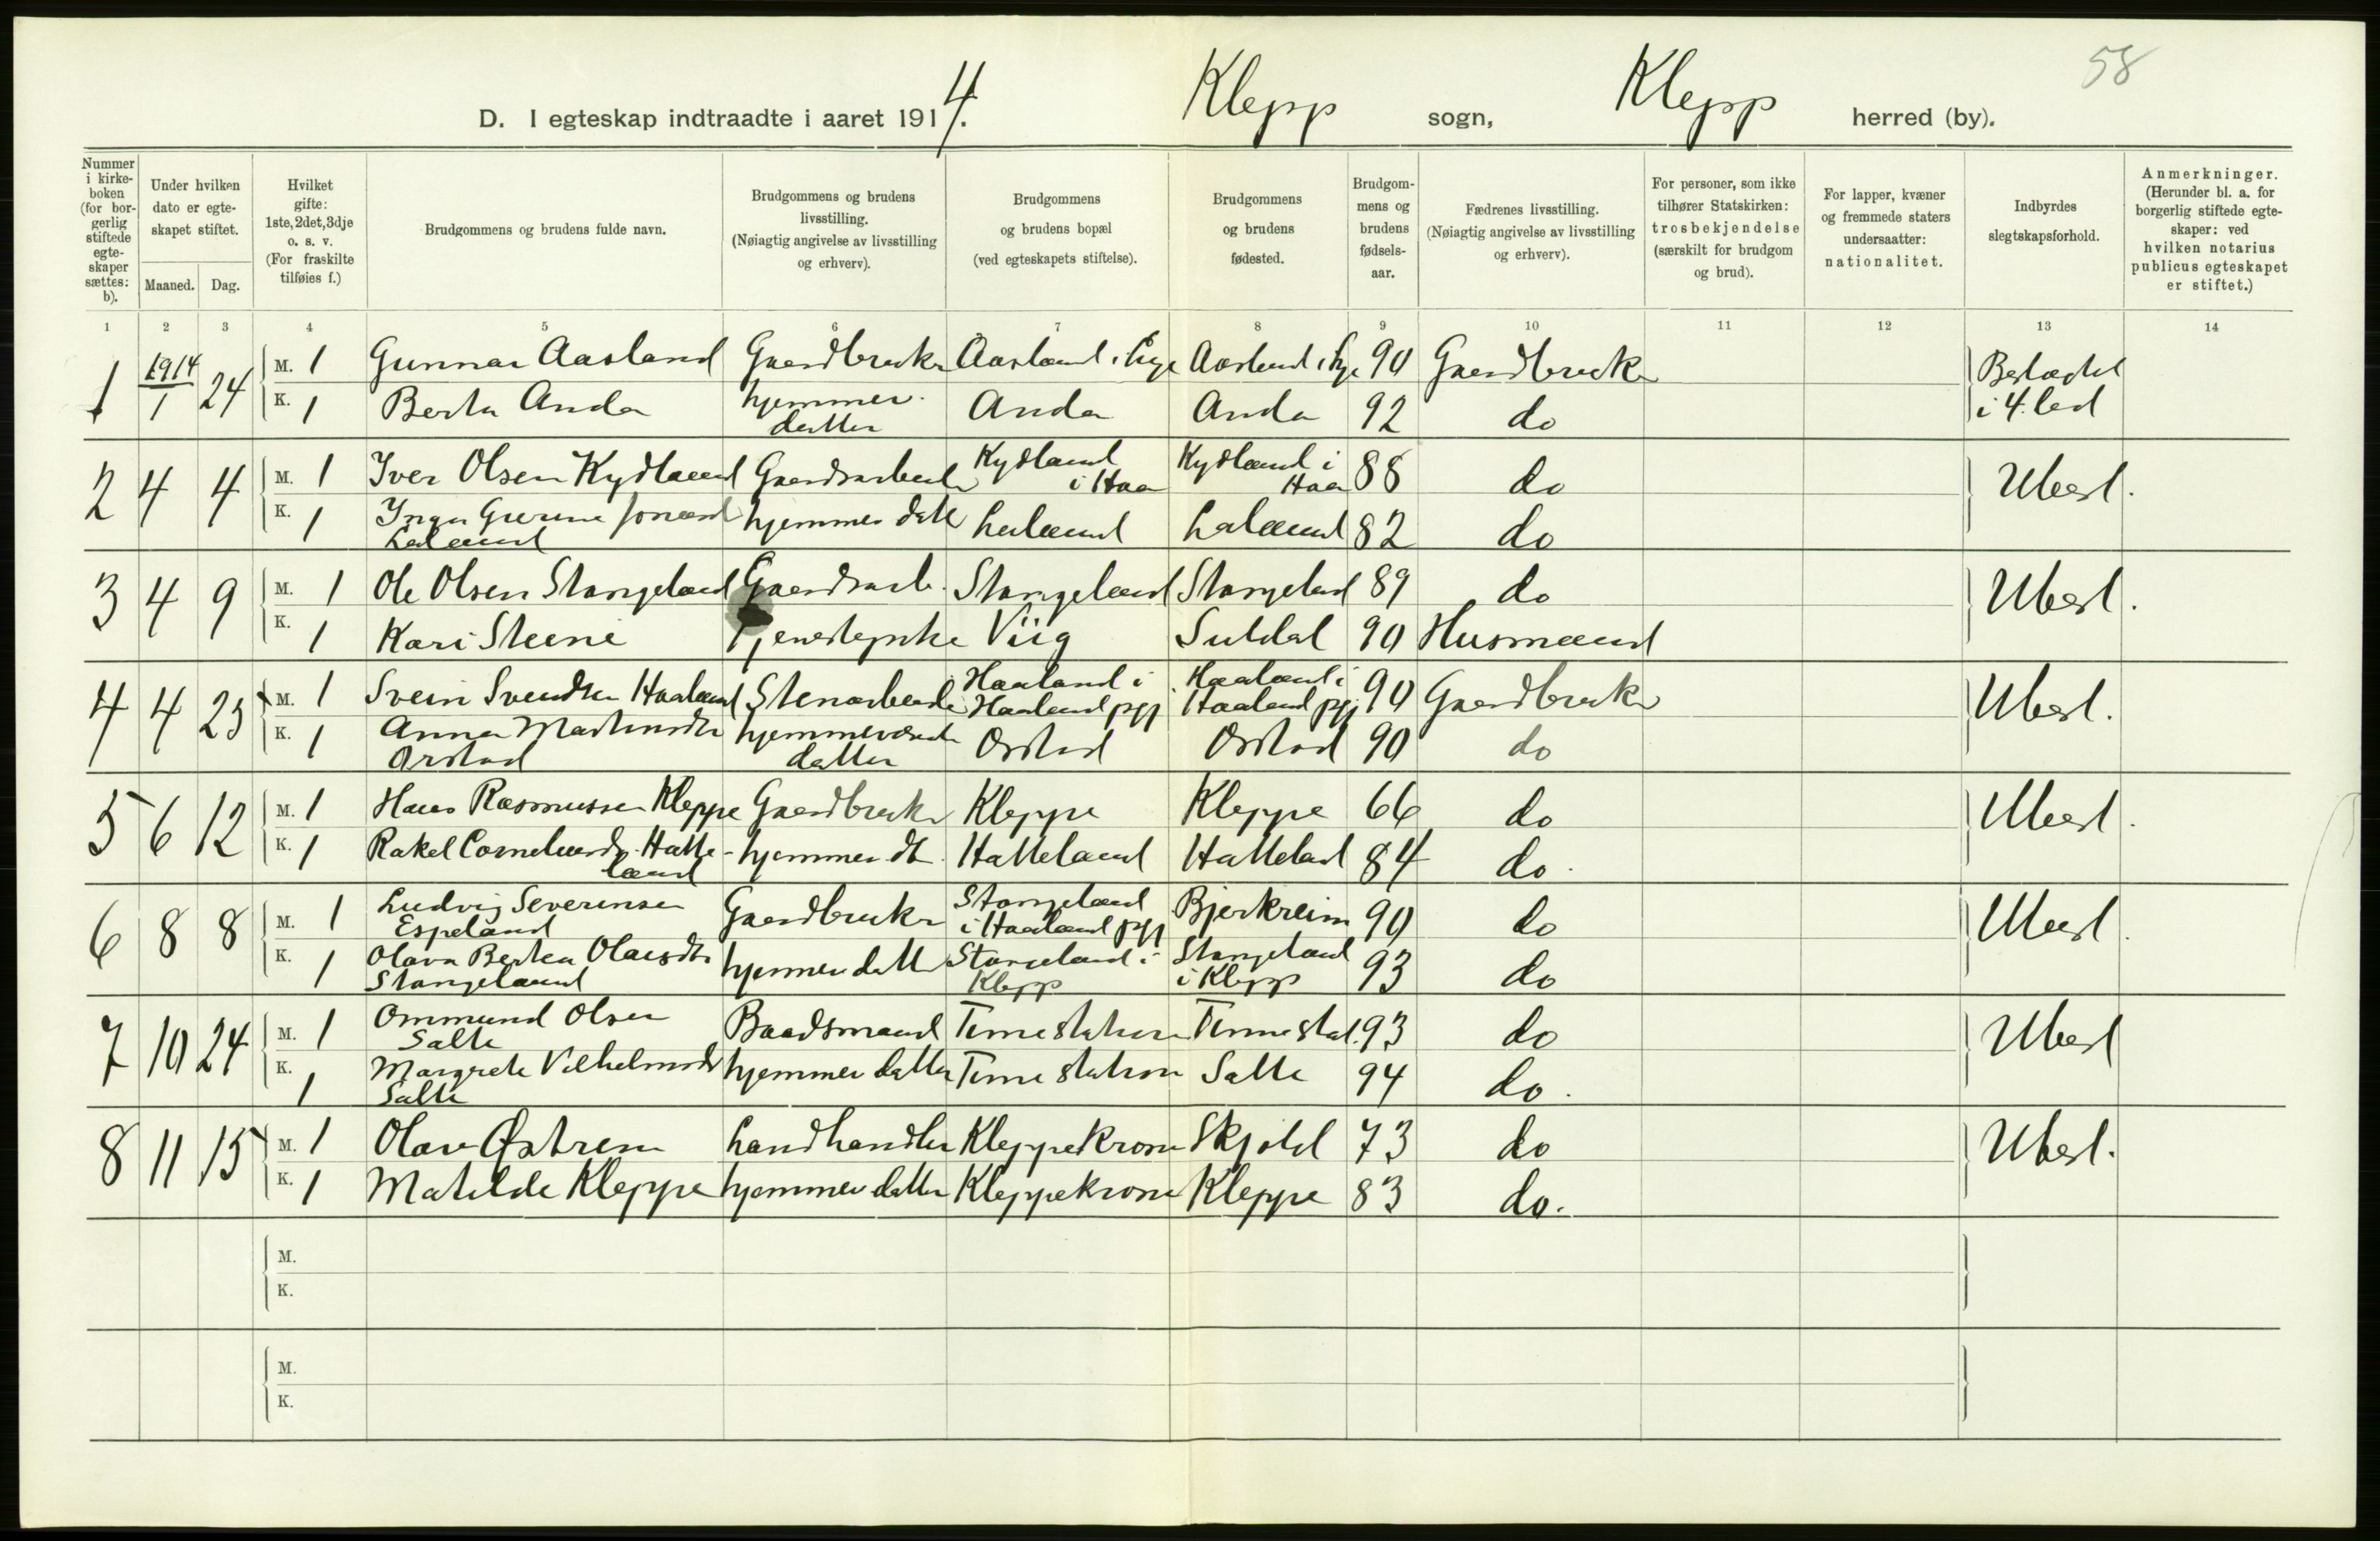 58
D. I egteskap indtraadte i aaret 1914. Klepp sogn, Klepp herred (by).
Nummer i kirke-boken (for bor-gerlig stiftede egte-skaper sættes: b).
Under hvilken dato er egte-skapet stiftet.
Maaned. Dag.
Hvilket gifte: 1ste, 2det, 3dje o. s. v. (For fraskilte tilføies f.)
Brudgommens og brudens fulde navn.
Brudgommens og brudens livsstilling. (Nøiagtig angivelse av livsstilling og erhverv).
Brudgommens og brudens bopæl (ved egteskapets stiftelse).
Brudgommens og brudens fødested.
Brudgom-mens og brudens fødsels-aar.
Fædrenes livsstilling. (Nøiagtig angivelse av livsstilling og erhverv).
For personer, som ikke tilhører Statskirken: trosbekjendelse (særskilt for brudgom og brud).
For lapper, kvæner og fremmede staters undersaatter: nationalitet.
Indbyrdes slegtskapsforhold.
Anmerkninger. (Herunder bl. a. for borgerlig stiftede egte-skaper: ved hvilken notarius publicus egteskapet er stiftet.)
1 2 3 4 5 6 7 8 9 10 11 12 13 14
1 1914 1 24 M. 1 Gunnar Aasland Gaardbruker Aasland i Lye Aasland i Lye 90 Gaardbruker Beslægtet
K. 1 Berta Anda hjemmev. datter Anda Anda 92 do i 4. led
2 4 4 M. 1 Iver Olsen Kydland Gaardsarbeider Kydland i Haa Kydland i Haa 88 do Ubesl.
K. 1 Inga Gurine Laland hjemmev datt Laland Laland 82 do
3 4 9 M. 1 Ole Olsen Stangeland Gaardsarb. Stangeland Stangeland 89 do Ubesl.
K. 1 Kari Steine Tjenestepike Viig Suldal 90 Husmand
4 4 25 M. 1 Svein Svendsen Haaland Stenarbeider Haaland i Haaland pgj Haaland i Haaland pgj 90 Gaardbruker Ubesl.
K. 1 Anna Martinsdtr Orstad hjemmeværende datter Orstad Orstad 90 do
5 6 12 M. 1 Hans Rasmussen Kleppe Gaardbruker Kleppe Kleppe 66 do Ubesl.
K. 1 Rakel Corneliusdr. Hatte-land hjemmev dt. Hatteland Hatteland 84 do.
6 8 8 M. 1 Ludvig Severinsen Espeland Gaardbruker Stangeland i Haaland pgj Bjerkreim 90 do Ubesl.
K. 1 Olava Bertea Olausdtr Stangeland hjemmev datter Stangeland i Klepp Stangeland i Klepp 93 do
7 10 24 M. 1 Ommund Olsen Salte Baadsmand Time station Time stat. 93 do Ubesl
K. 1 Margrete Vilhelmsdr Salte hjemmev datter Time station Salte 94 do.
8 11 15 M. 1 Olav Østrem Landhandler Kleppekrossen Skjold 73 do Ubesl.
K. 1 Matilde Kleppe hjemmev datter Kleppekrossen Kleppe 83 do.
M.
K.
M.
K.